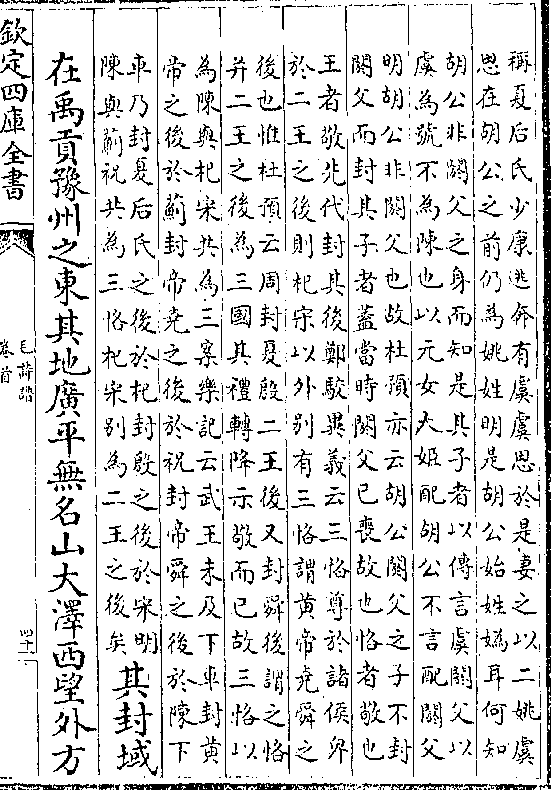 稱夏后氏少康逃奔有虞虞思於是妻之以二姚虞
思在胡公之前仍為姚姓明是胡公始姓媯耳何知
胡公非閼父之身而知是其子者以傳言虞閼父以
虞為號不為陳也以元女大姬配胡公不言配閼父
明胡公非閼父也故杜預亦云胡公閼父之子不封
閼父而封其子者蓋當時閼父已喪故也恪者敬也
王者敬先代封其後鄭駁異義云三恪尊於諸侯卑
於二王之後則杞宋以外别有三恪謂黄帝堯舜之
後也惟杜預云周封夏殷二王後又封舜後謂之恪
并二王之後為三國其禮轉降示敬而已故三恪以
為陳與杞宋共為三案樂記云武王未及下車封黄
帝之後於薊封帝堯之後於祝封帝舜之後於陳下
車乃封夏后氏之後於杞封殷之後於宋明
陳與薊祝共為三恪杞宋别為二王之後矣
其封域
在禹貢豫州之東其地廣平無名山大澤西望外方
欽定四庫全書
毛詩譜
卷首
四十一